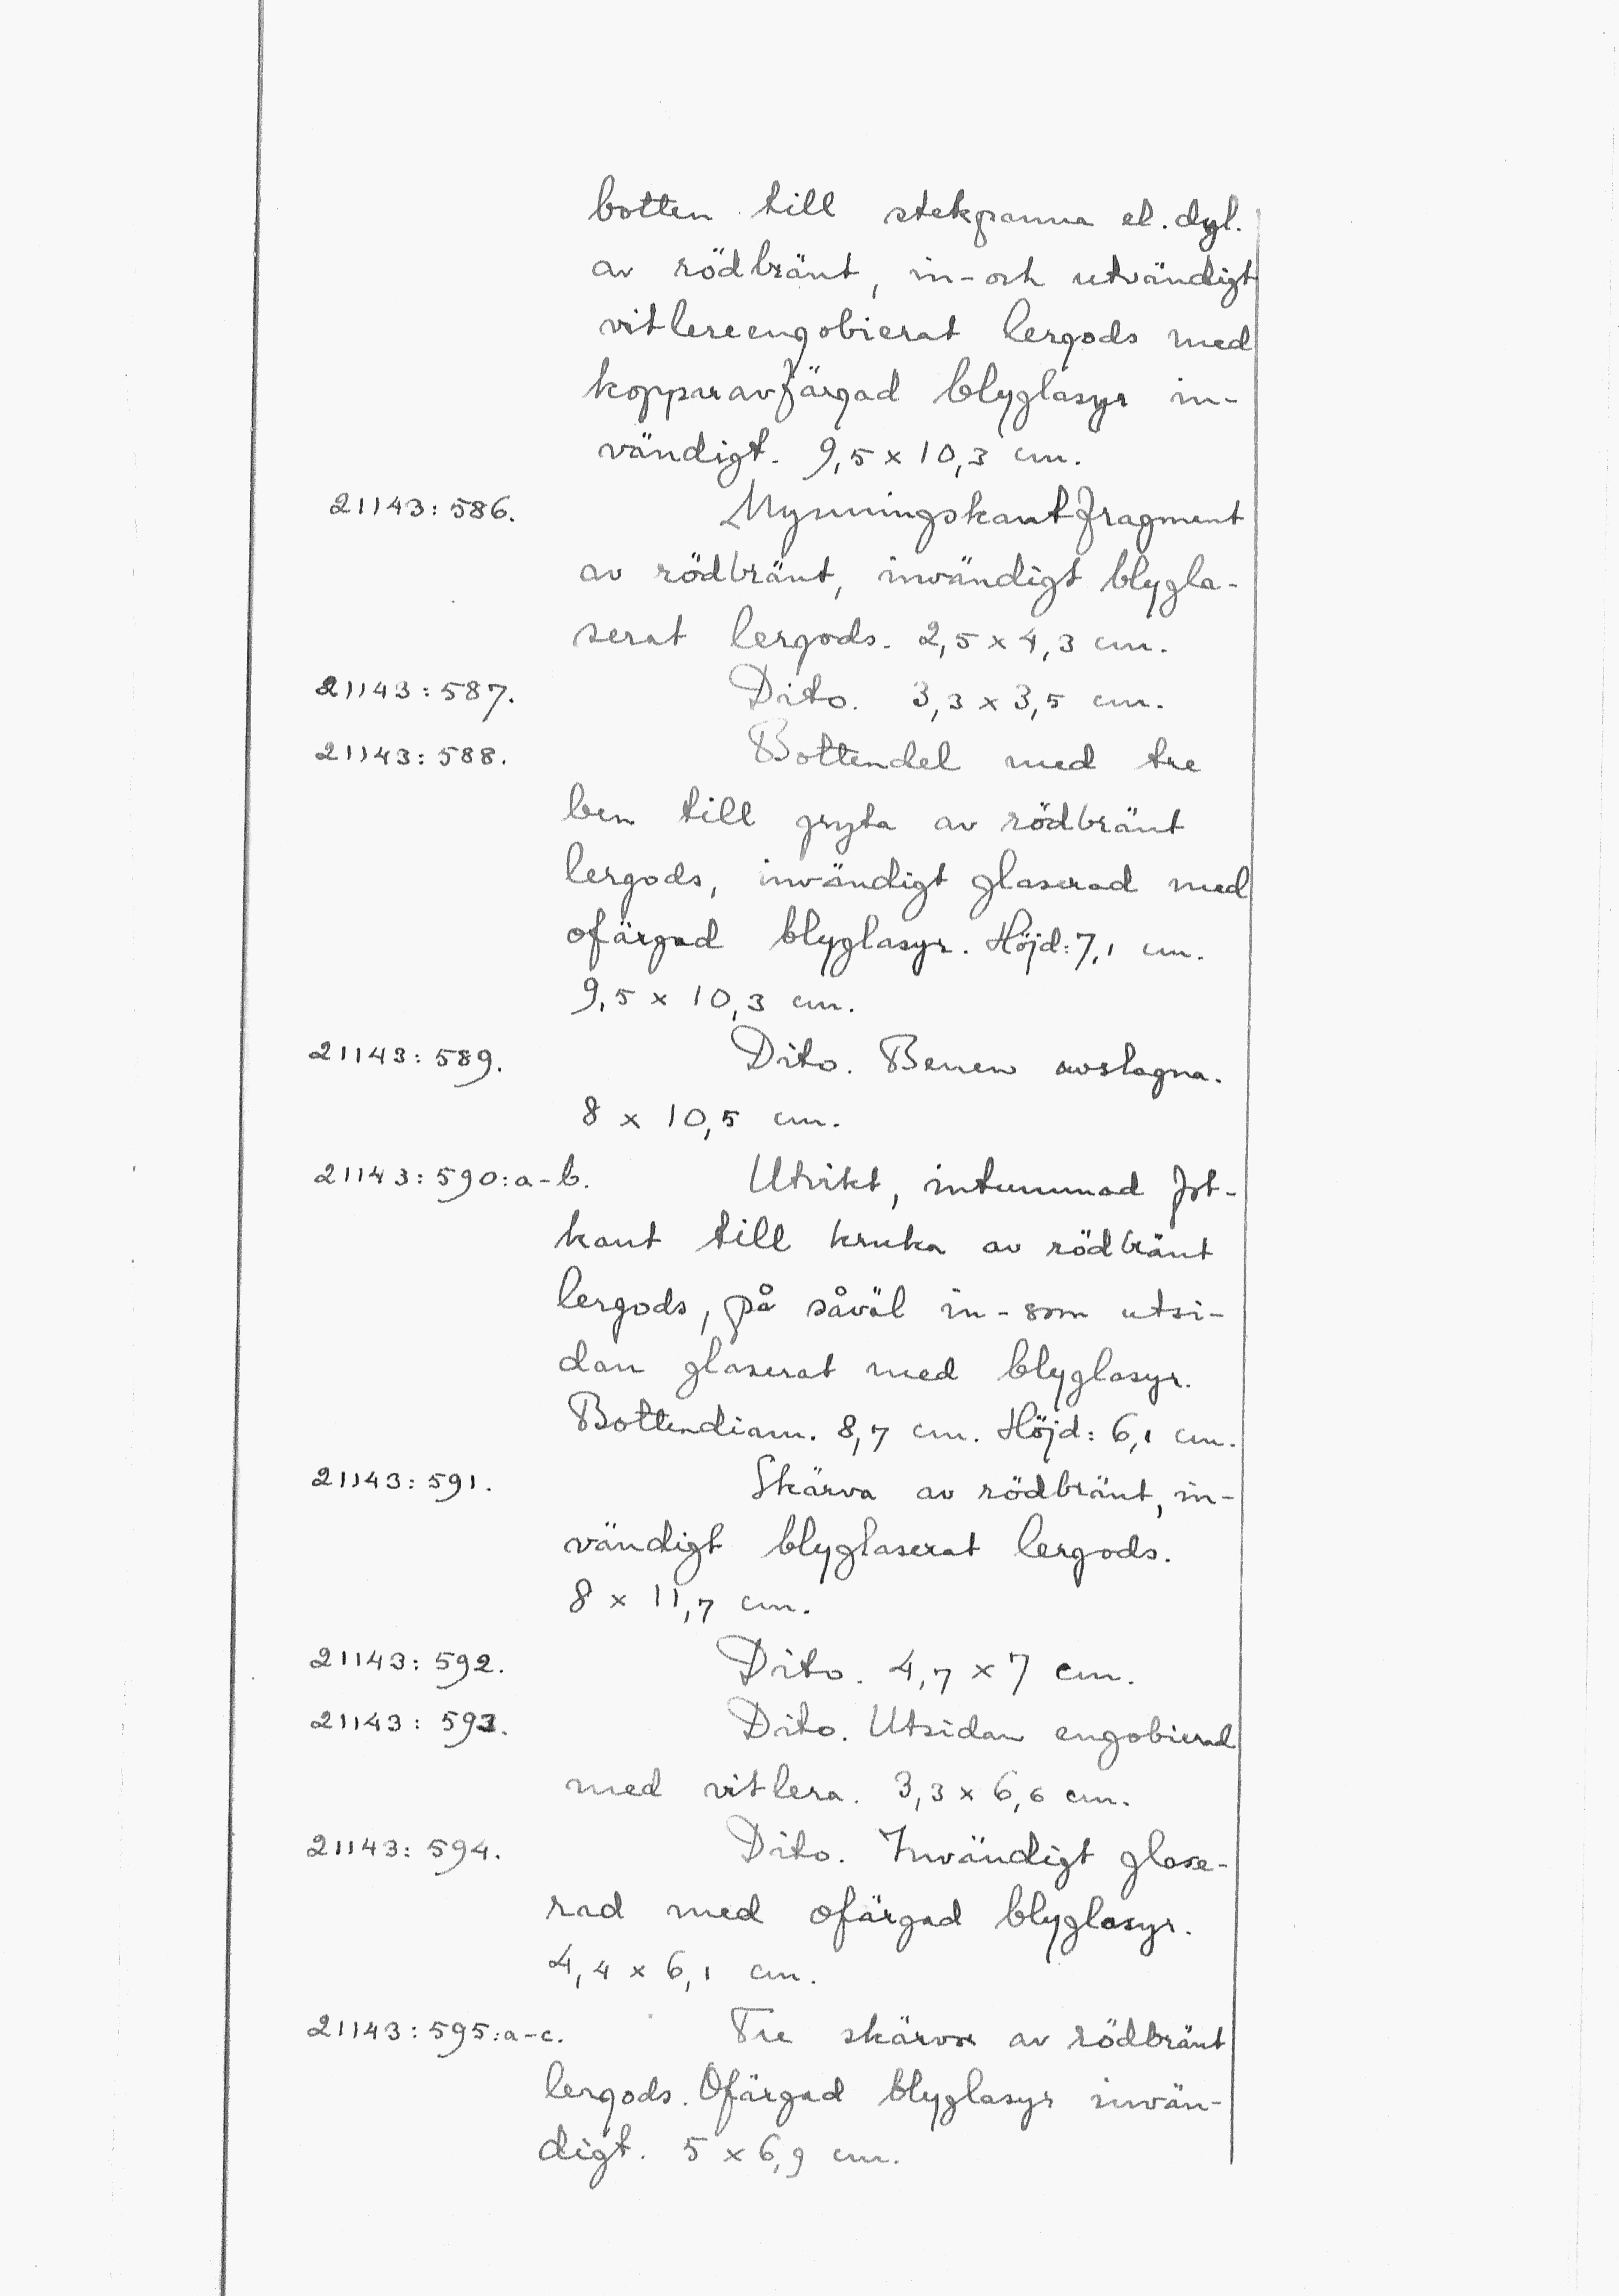 botten till stekpanna el. dyl.
av rödbränt, in- och utvändigt
vitlereengobierat lergods med
kopparavfärgad blyglasyr in-
vändigt. 9,5 x 10,3 cm.
21143:586. Mynningskantfragment
av rödbränt, invändigt blygla-
serat lergods. 2,5 x 4,3 cm.
21143:587. Dito. 3,3 x 3,5 cm.
21143:588. Bottendel med tre
ben till gryta av rödbränt
lergods, invändigt glaserad med
ofärgad blyglasyr. Höjd: 7,1 cm.
9,5 x 10,3 cm.
21143:589. Dito. Benen avslagna.
8 x 10,5 cm.
21143:590:a-b. Utvikt, intummad fot-
kant till kruka av rödbränt
lergods, på såväl in- som utsi-
dan glaserat med blyglasyr.
Bottendiam. 8,7 cm. Höjd: 6,1 cm.
21143:591. Skärva av rödbränt, in-
vändigt blyglaserat lergods.
8 x 11,7 cm.
21143:592. Dito. 4,7 x 7 cm.
21143:593. Dito. Utsidan engobierad
med vitlera. 3,3 x 6,6 cm.
21143:594. Dito. Invändigt glase-
rad med ofärgad blyglasyr.
4,4 x 6,1 cm.
21143:595:a-c. Tre skärvor av rödbränt
lergods. Ofärgad blyglasyr invän-
digt. 5 x 6,9 cm.